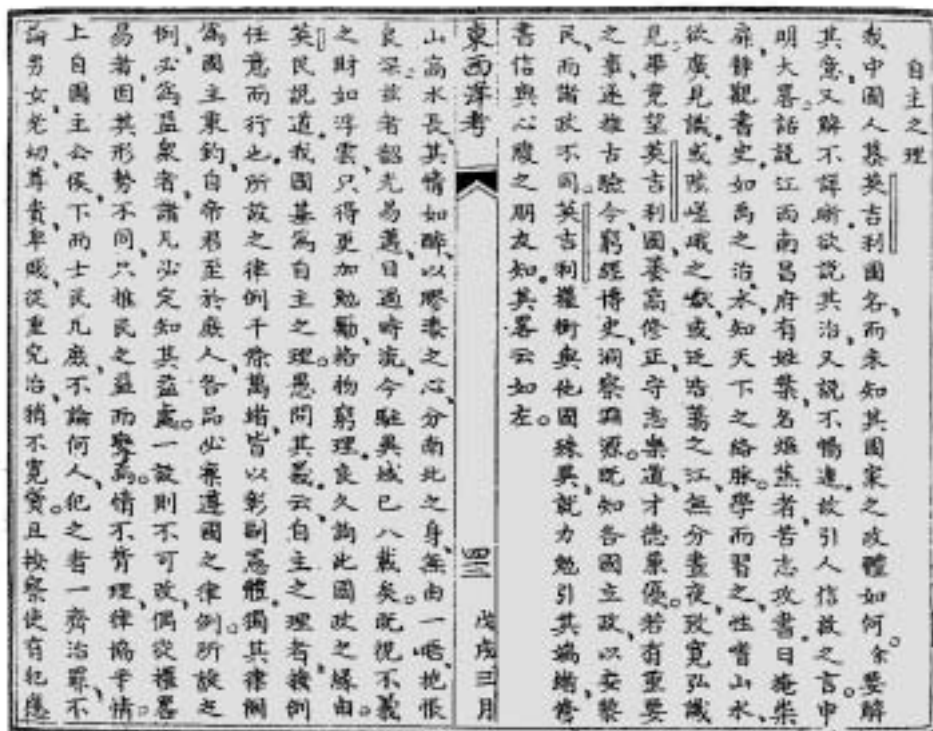 自主之理
我中國人慕英吉利國名而未知其國家之政體如何余要解
其意又解不詳晰欲說其治又說不暢達故引人信故之言申
明大畧話說江西南昌府有姓葉名煙蒸者苦志攻書日掩柴
扉靜觀書史如禹之治水知天下之絡脉學而習之性嗜山水
欲廣見識或陟嵯峨之嶽或泛浩蕩之江無分晝夜致寬弘識
見畢竟望英吉利國蔓高修正守志樂道才德兼優若有重要
之事逐推古驗今窮經博史洞察淵源既知各國立政以安黎
民而諸政不同英吉利權衡與他國殊異就力勉引其端緒修
書信與心腹之朋友知其畧云如左
東西洋考 四三 戊戌三月
山高水長其情如醉以膠漆之心分南北之身無由一晤抱恨
良深茲者韶光易邁日過時流今駐異域已八載矣既視不義
之財如浮雲只得更加勉勵格物窮理良久詢此國政之緣由
英民說道我國基為自主之理愚問其義云自主之理者按例
任意而行也所設之律例千條萬緒皆以彰副憲體獨其律例
為國主秉鈞自帝君至於庶人各品必凜遵國之律例所設之
例必為益眾者諸凡必定知其益處一設則不可改偶從權畧
易者因其形勢不同只推民之益而變焉情不背理律協乎情
上自國主公侯下而士民凡庶不論何人犯之者一齊治罪不
論男女老幼尊貴卑賤從重究治稍不寬貸且按察使有犯應